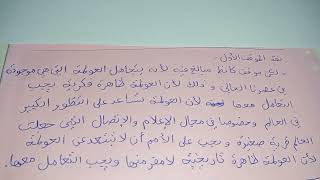 نقد الموقف الأول:
- لكن موقف كانط مبالغ فيه لأنه يتجاهل العولمة التي هي موجودة
في عصرنا الحالي و ذلك لأن العولمة ظاهرة فكرية يجب
التعامل معها لأن العولمة تساعد على التطور الكبير
في العالم وخصوصا في مجال الإعلام والإتصال التي جعلت
العالم قرية صغيرة و يجب على الأمم أن لا تبتعد عن العولمة
لأن العولمة ظاهرة تاريخية لا مفر منها ويجب التعامل معها.